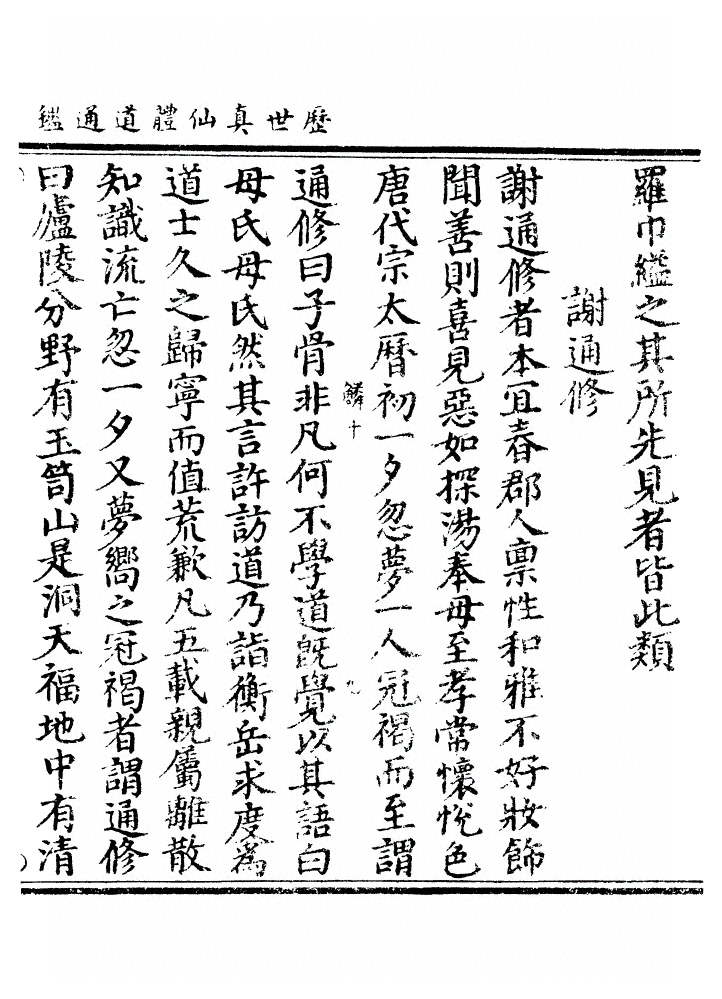 歷世真仙體道通鑑
羅巾縊之其所先見者皆此類
謝通修
謝通修者本冝春郡人禀性和雅不好妝飾
聞善則喜見惡如探湯奉母至孝常懷悅色
唐代宗太曆初一夕忽夢一人冠褐而至謂
鱗十
通修曰子骨非凡何不學道旣覺以其語白
母氏母氏然其言許訪道乃詣衡岳求度爲
道士久之歸寧而值荒歉凡五載親屬離散
知識流亡忽一夕又夢嚮之冠褐者謂通修
曰廬陵分野有玉笥山是洞天福地中有清